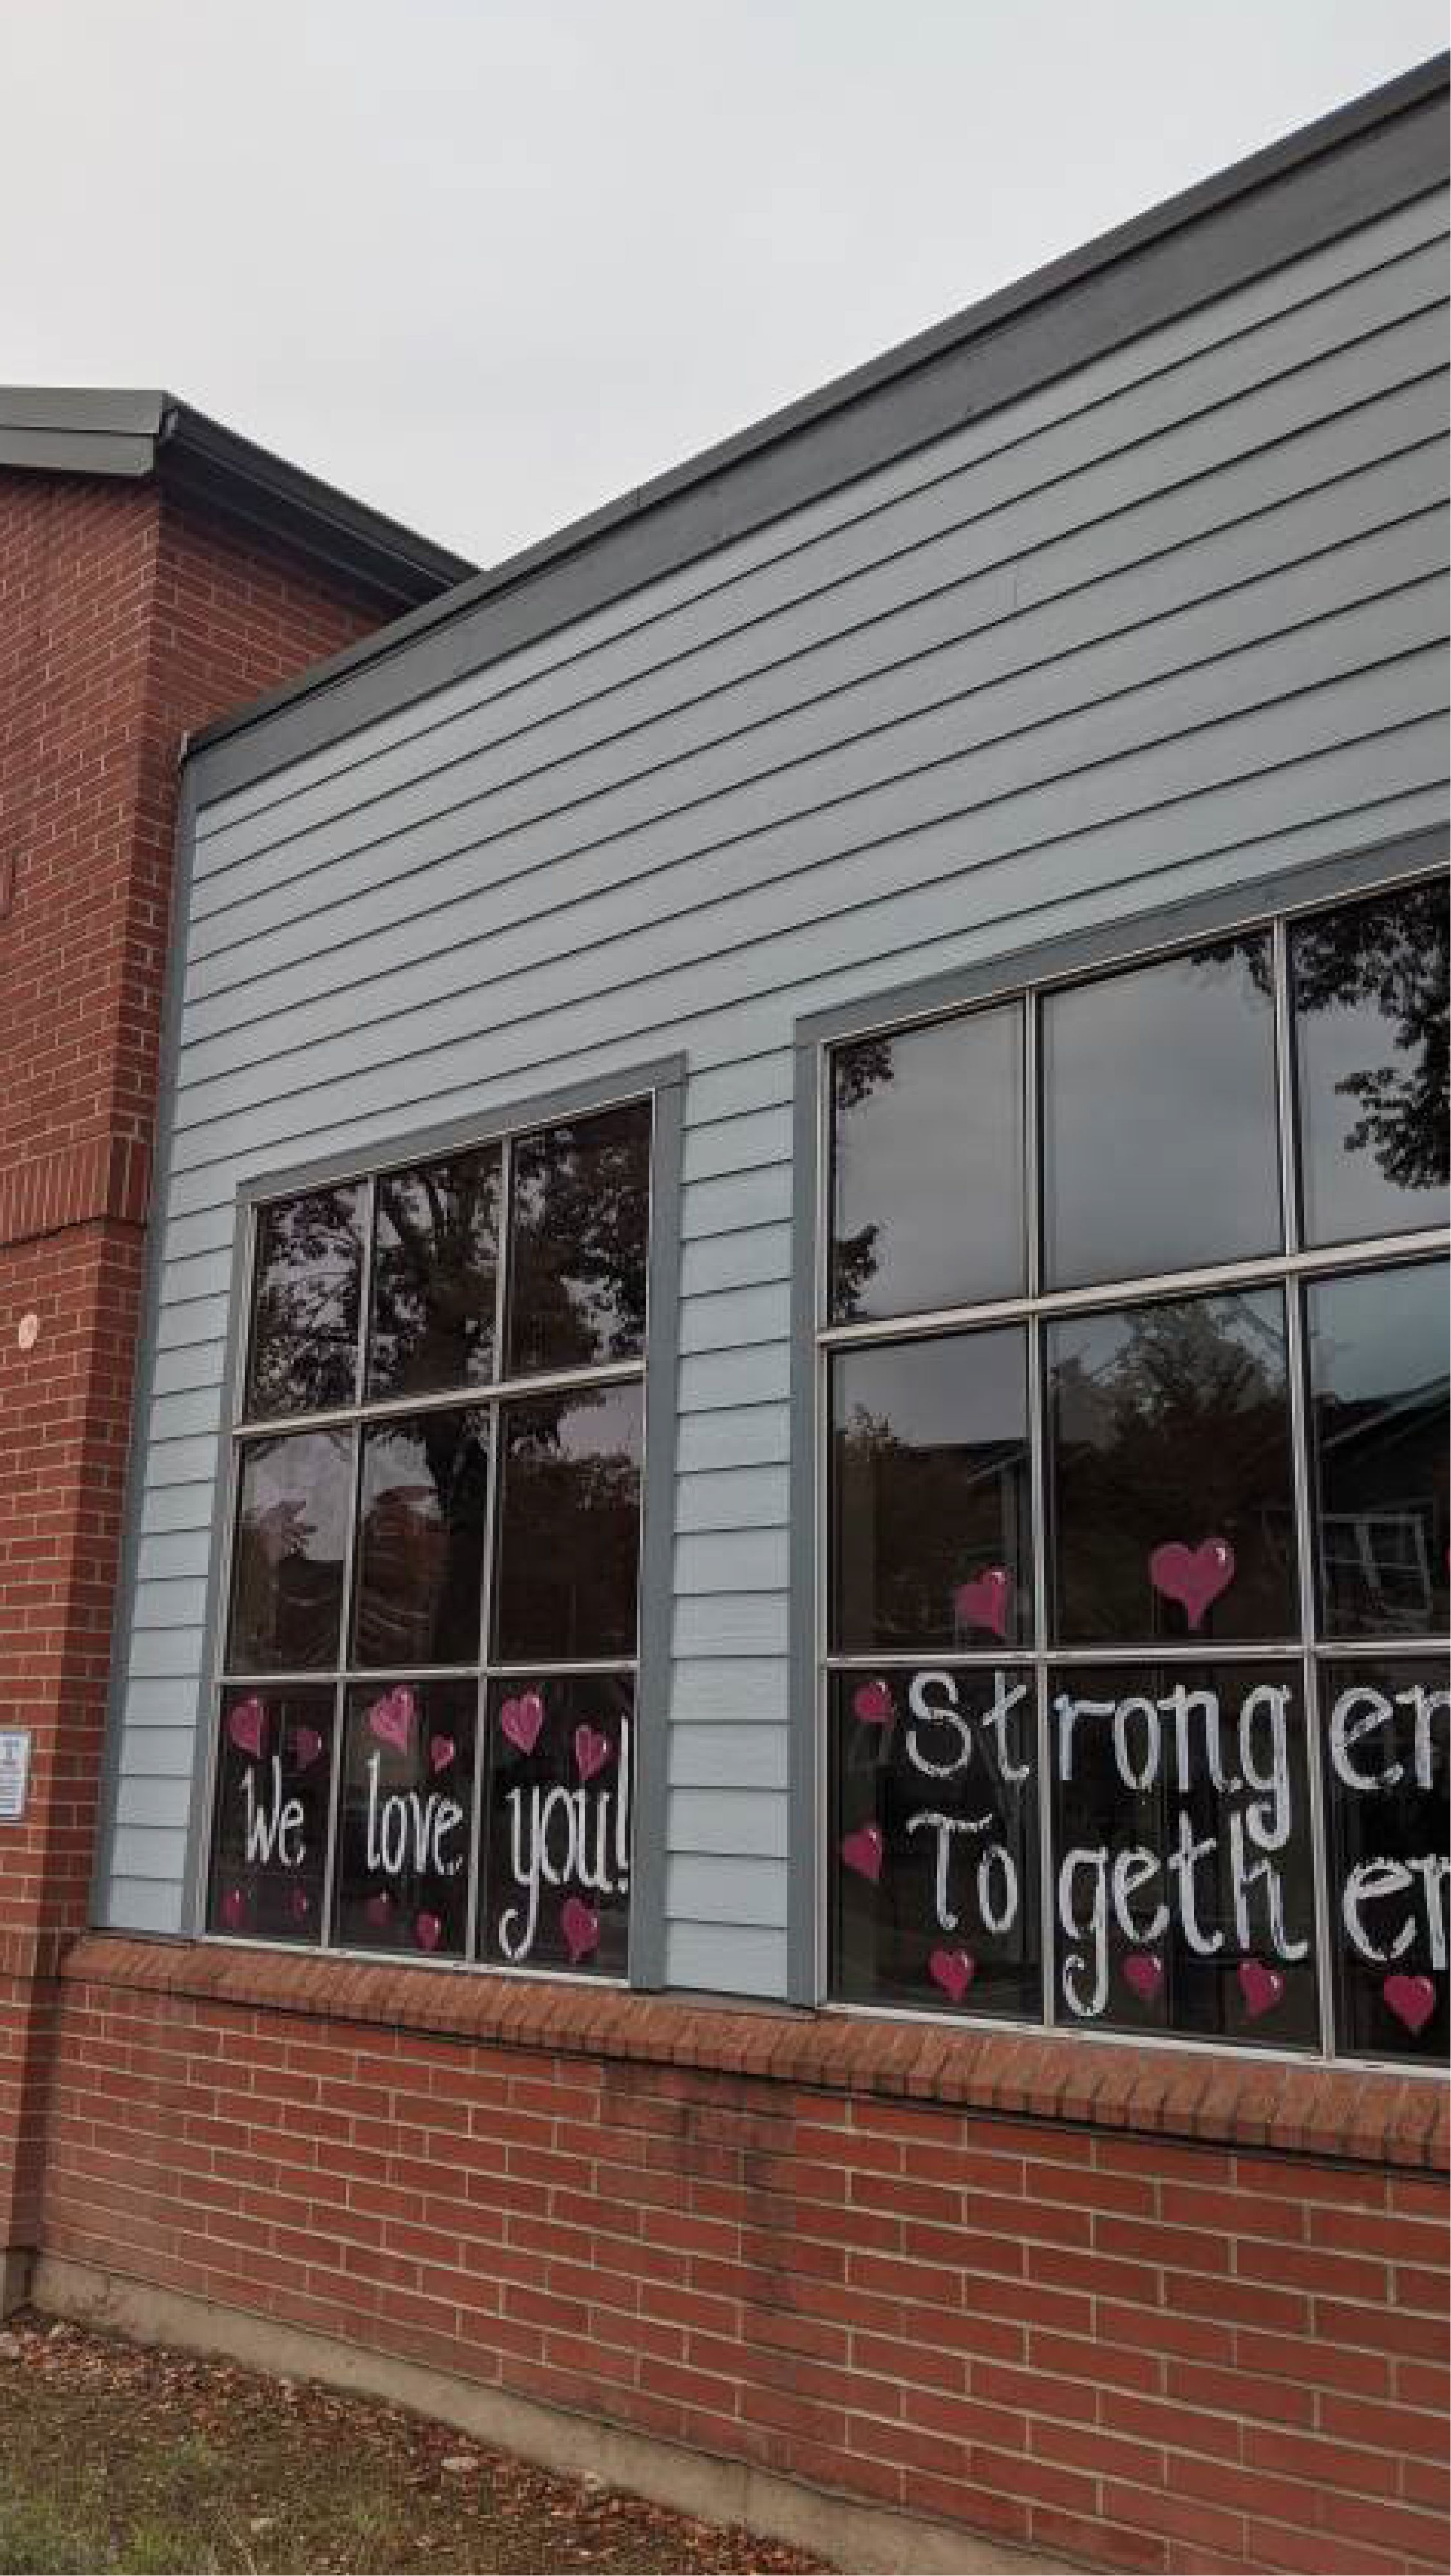 We love you!
Stronger
Together